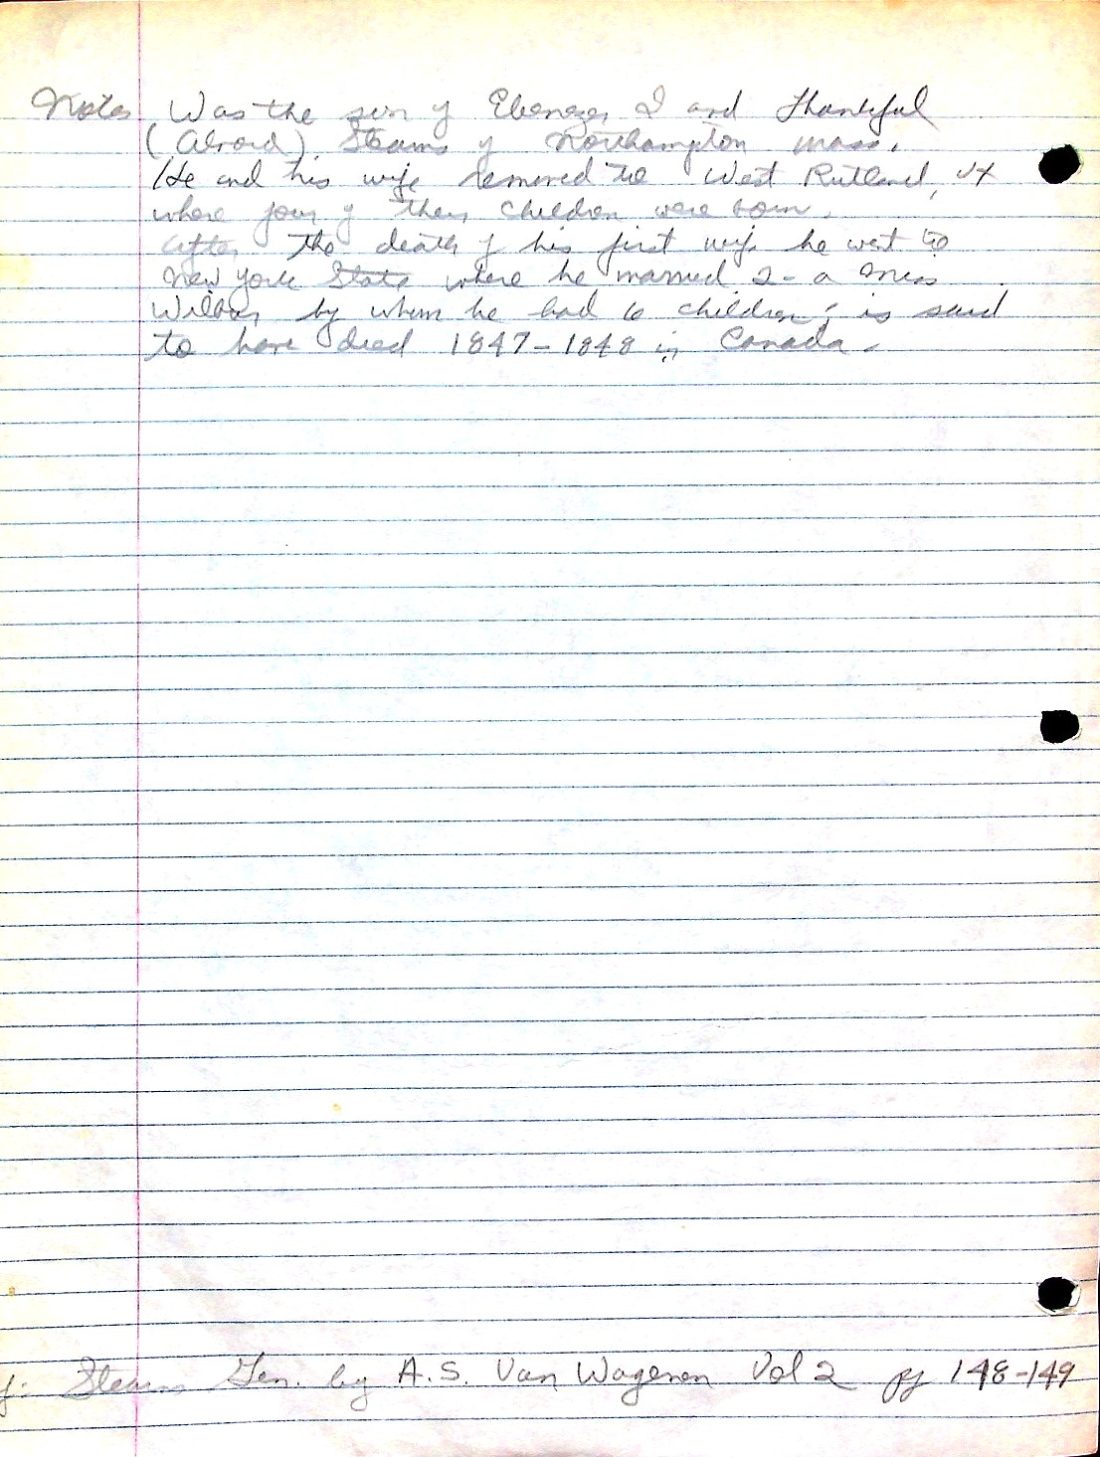 Notes Was the son of Ebenezer I and Thankful
(Alvord) Stearns of Northampton Mass.
He and his wife removed to West Rutland, Vt
where four of their children were born.
After the death of his first wife he went to
New York State where he married 2- a Miss
Wilbur by whom he had 6 children; is said
to have died 1847-1848 in Canada.
Stearns Gen. by A.S. Van Wagenen Vol 2 pg 148-149